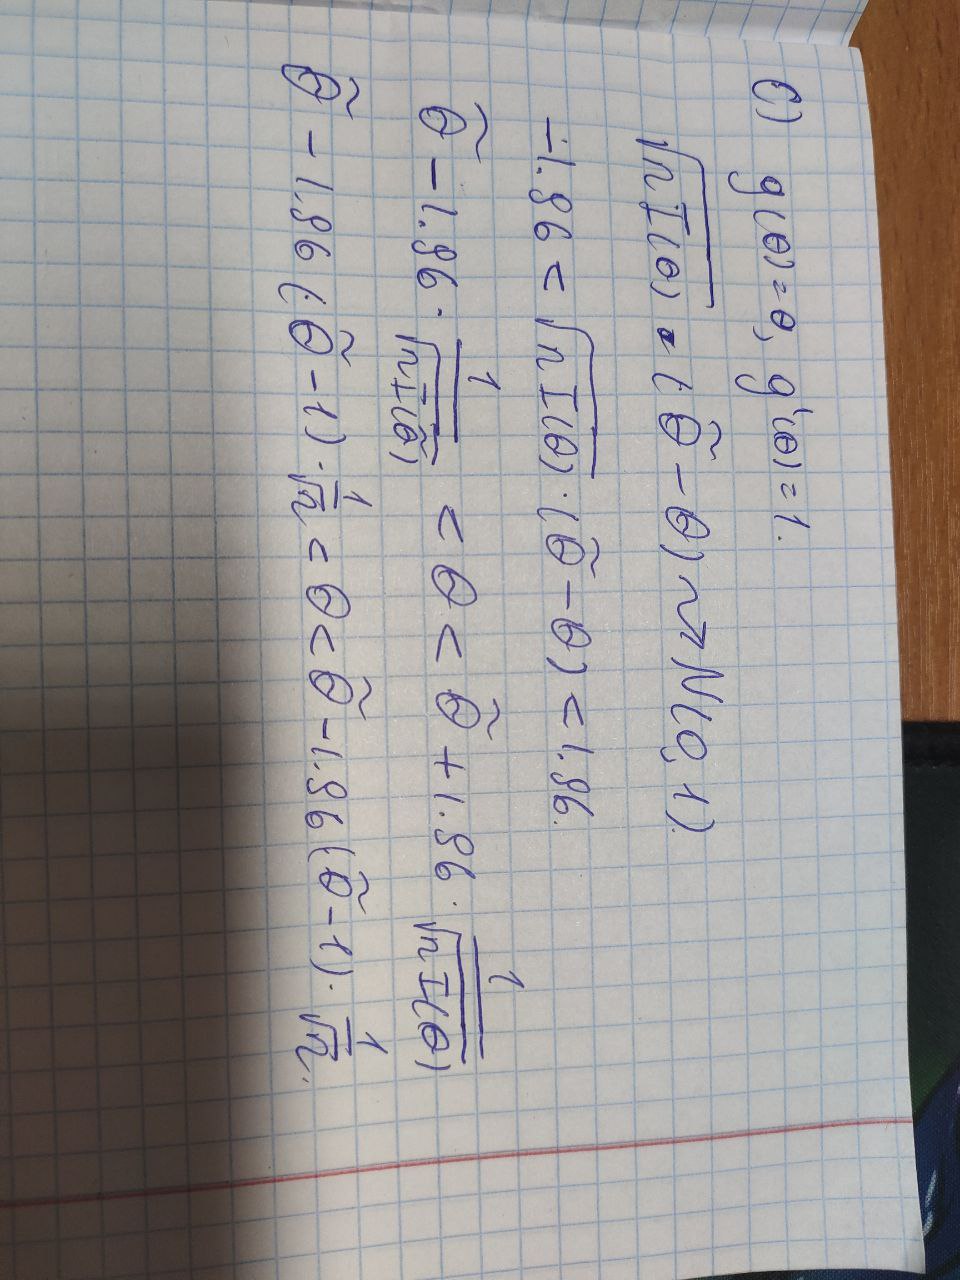 c) g(θ)=θ, g'(θ)=1.
√(nI(θ)) · (θ̃ − θ) ⇝ N(0,1).
−1.96 < √(nI(θ)) · (θ̃ − θ) < 1.96.
θ̃ − 1.96 · 1/√(nI(θ̃)) < θ < θ̃ + 1.96 · 1/√(nI(θ))
θ̃ − 1.96 (θ̃ − 1) · 1/√n < θ < θ̃ − 1.96 (θ̃ − 1) · 1/√n.